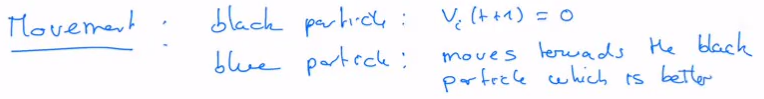 Movement : black particle : V_i(t+1) = 0
blue particle : moves towards the black
particle which is better